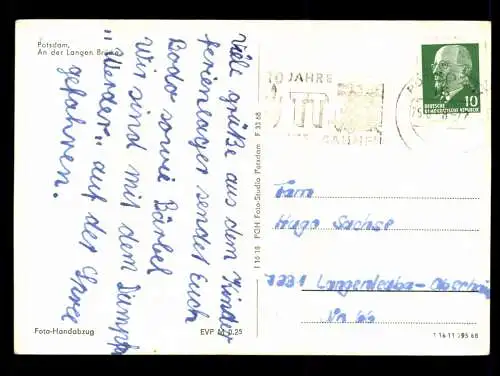 Potsdam,
An der Langen Brücke
Viele grüße aus dem Kinder
ferienlager sendet Euch
Bodo sowie Bärbel
Wir sind mit dem Dampfer
"Werder" auf der Spree
gefahren.
Foto-Handabzug
EVP M 0,25
I 16 18 PGN Foto-Studio Potsdam F 33 68
10 JAHRE
DEUTSCHE
DEMOKRATISCHE REPUBLIK
10
Fam
Hugo Sachse
7231 Langenleuba-Oberhain
Nr 66